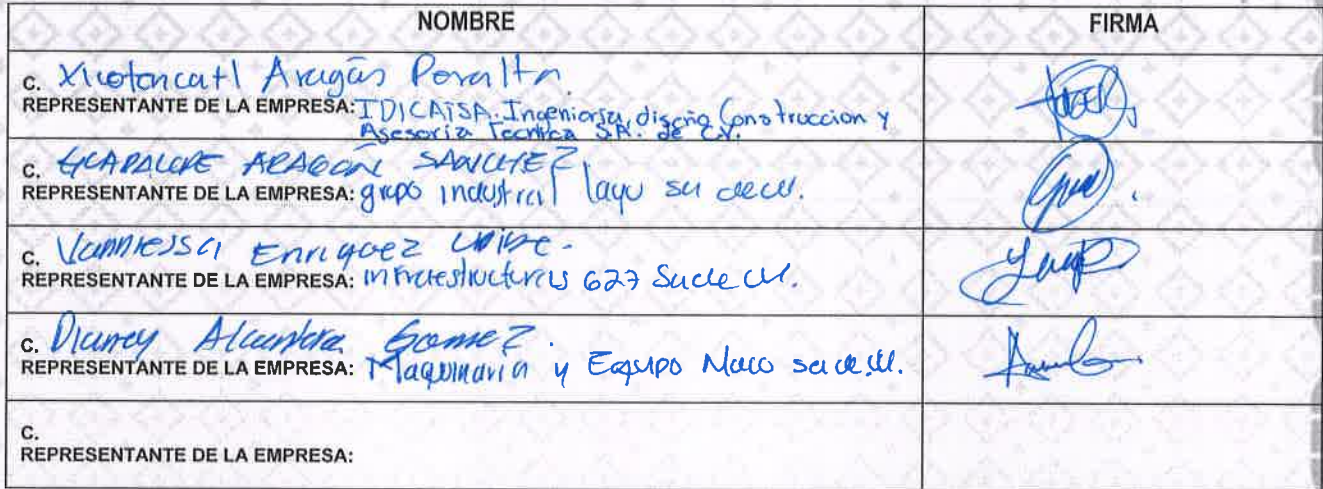 NOMBRE FIRMA
C. Xicotencatl Aragón Peralta
REPRESENTANTE DE LA EMPRESA: IDICAISA. Ingeniersa, diseño Construccion y
Asesoría Tecnica S.A. de C.V.
C. GUADALUPE ARAGÓN SANCHEZ
REPRESENTANTE DE LA EMPRESA: grupo industrial layu sa de cv.
C. Vannessa Enriquez Uribe.
REPRESENTANTE DE LA EMPRESA: infraestructuras 627 Sa de CV.
C. Dianey Alcantara Gomez.
REPRESENTANTE DE LA EMPRESA: Maquinaria y Equipo Maco sa de cv.
C.
REPRESENTANTE DE LA EMPRESA: